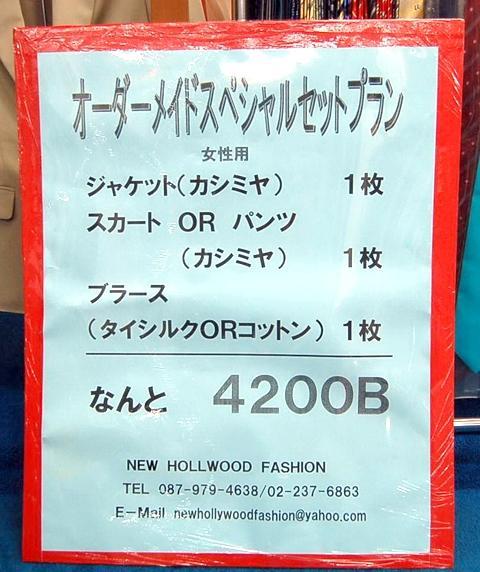 オーダーメイドスペシャルセットプラン
女性用
ジャケット(カシミヤ) 1枚
スカート OR パンツ
(カシミヤ) 1枚
ブラース
(タイシルクORコットン) 1枚
なんと 4200B
NEW HOLLWOOD FASHION
TEL 087-979-4638/02-237-6863
E-Mail newhollywoodfashion@yahoo.com